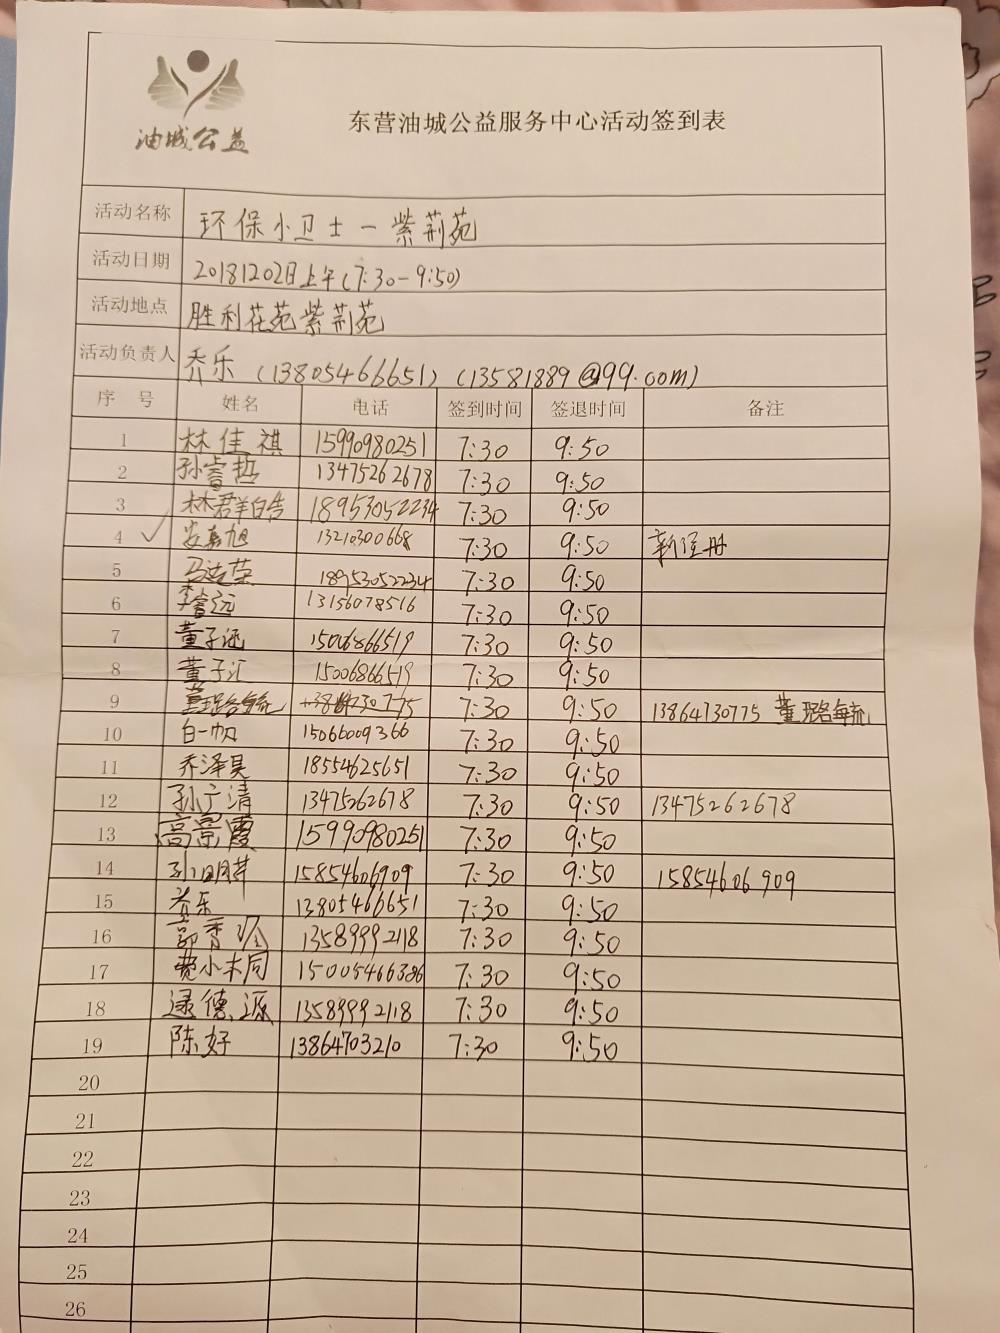 油城公益
东营油城公益服务中心活动签到表
活动名称 环保小卫士一紫荆苑
活动日期 20181202日上午(7:30-9:50)
活动地点 胜利花苑紫荆苑
活动负责人 乔乐 (13805466651) (13581889@99.com)
序号 姓名 电话 签到时间 签退时间 备注
1 林佳祺 15990980251 7:30 9:50
2 孙睿哲 13475262678 7:30 9:50
3 林群皓 18953052234 7:30 9:50
4 安嘉旭 13210300668 7:30 9:50 新注册
5 马连荣 18953052234 7:30 9:50
6 李睿远 13156078516 7:30 9:50
7 董子涵 15006866519 7:30 9:50
8 董子汇 15006866519 7:30 9:50
9 7:30 9:50 13864730775 董璐毓
10 白一帆 15066009366 7:30 9:50
11 乔泽昊 18554625651 7:30 9:50
12 孙广清 13475262678 7:30 9:50 13475262678
13 高景霞 15990980251 7:30 9:50
14 孙明芹 15854606909 7:30 9:50 15854606909
15 乔乐 13805466651 7:30 9:50
16 郭秀玲 13589992118 7:30 9:50
17 费小桐 15005466386 7:30 9:50
18 逯德源 13589992118 7:30 9:50
19 陈好 13864703210 7:30 9:50
20
21
22
23
24
25
26